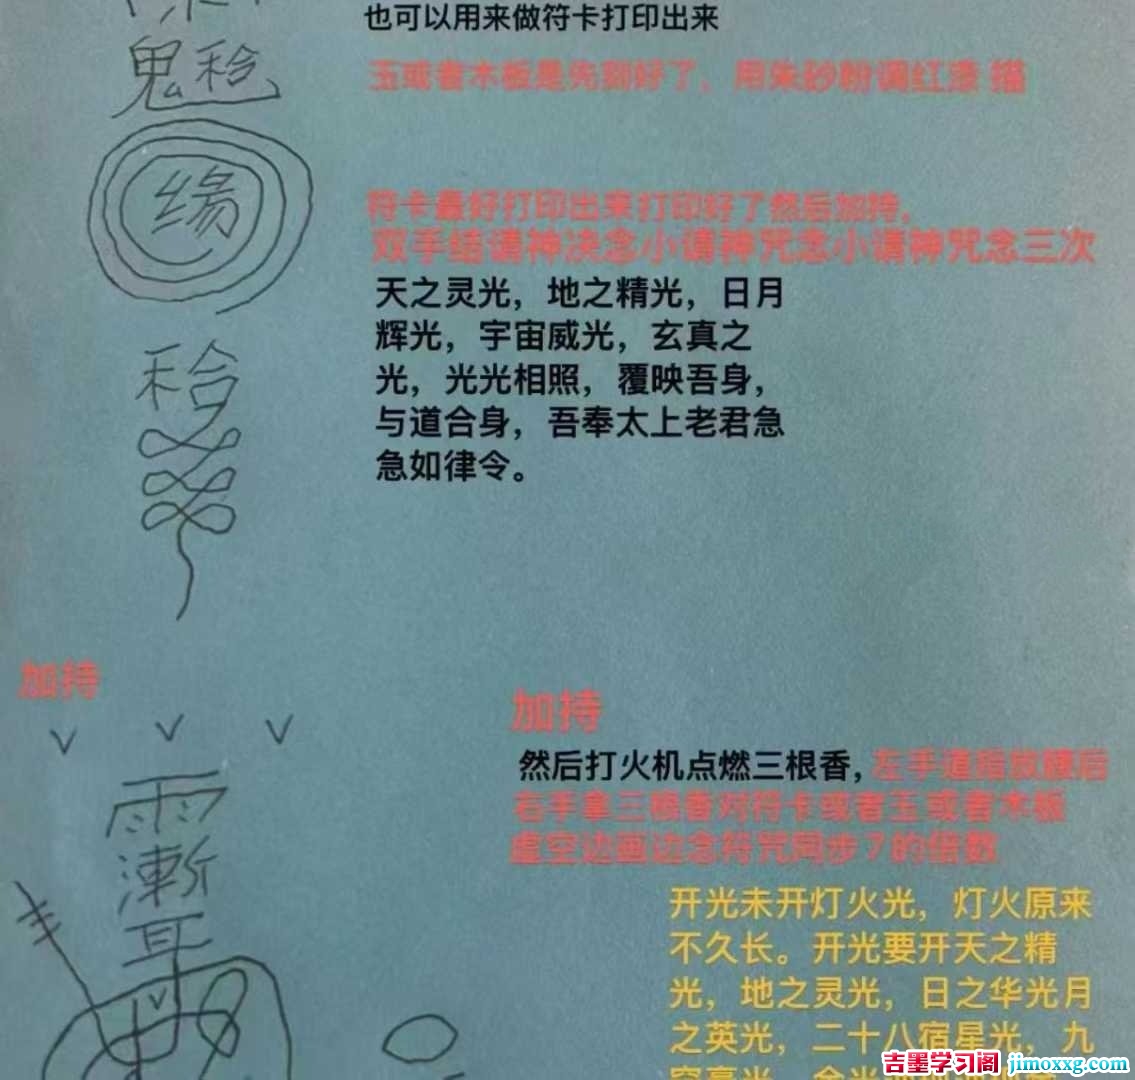 也可以用来做符卡打印出来
玉或者木板是先刻好了,用朱砂粉调红漆 描
缘
符卡最好打印出来打印好了然后加持,
双手结请神决念小请神咒念小请神咒念三次
天之灵光,地之精光,日月
辉光,宇宙威光,玄真之
光,光光相照,覆映吾身,
与道合身,吾奉太上老君急
急如律令。
加持
加持
然后打火机点燃三根香,左手道指放腰后
右手拿三根香对符卡或者玉或者木板
虚空边画边念符咒同步7的倍数
雨
漸
耳
开光未开灯火光,灯火原来
不久长。开光要开天之精
光,地之灵光,日之华光月
之英光,二十八宿星光,九
吉墨学习阁 jimoxxg.com